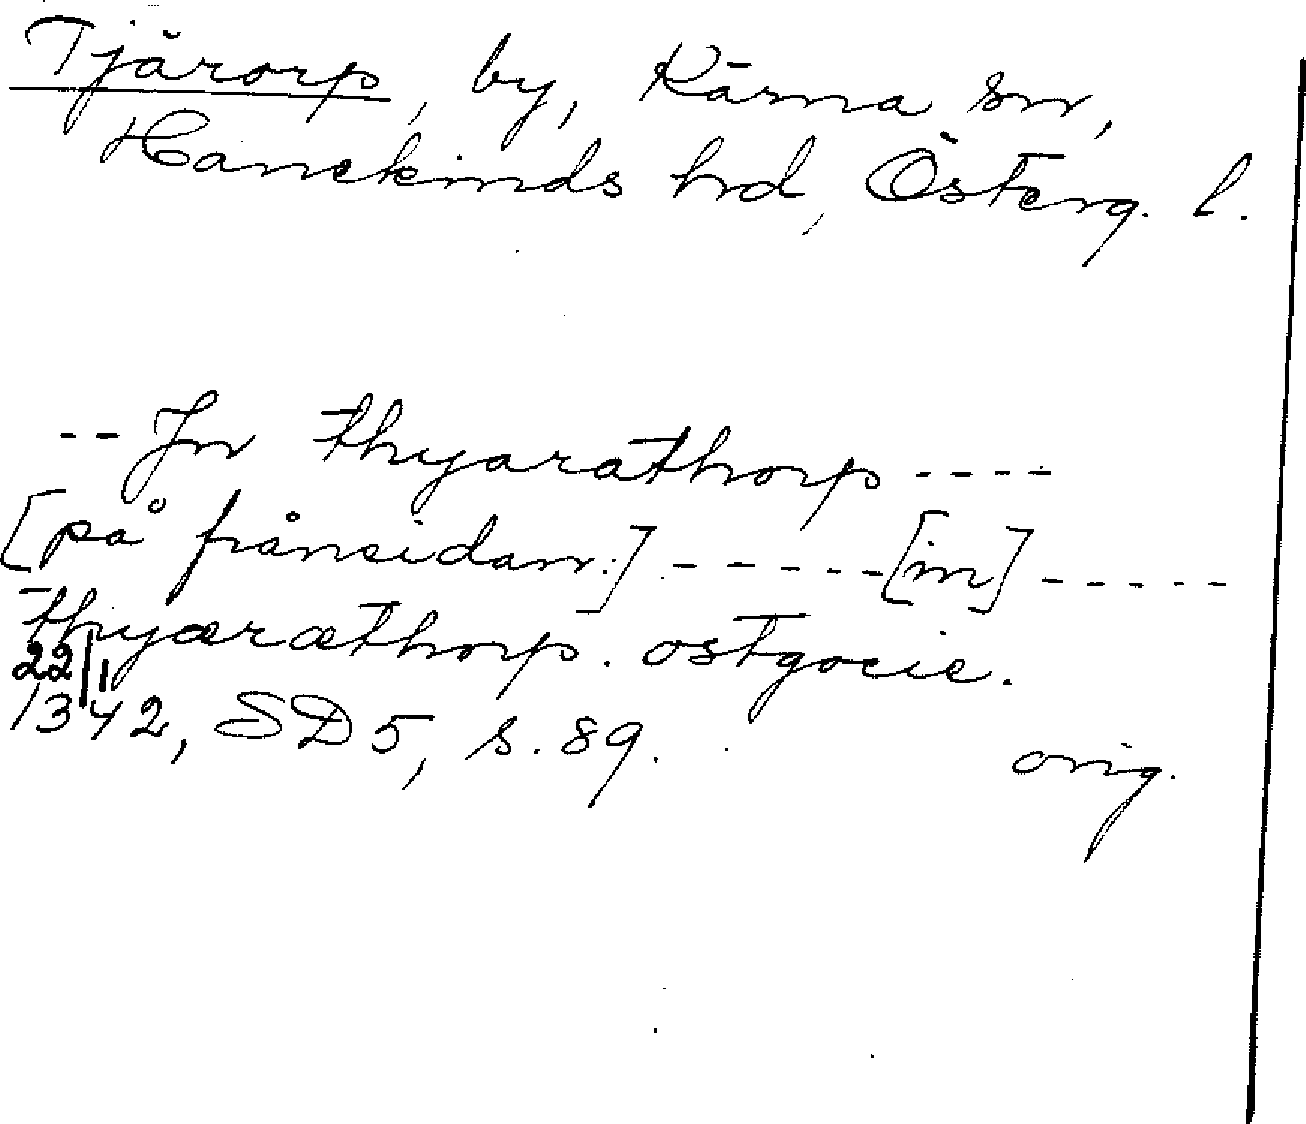 Tjärorp, by, Kärna sn,
Hanekinds hrd, Österg. l.
-- Jn thyarathorp ----
[på frånsidan:] ----- [in] -----
thyæræthorp. ostgocie.
22/1
1342, SD 5, s. 89. orig.